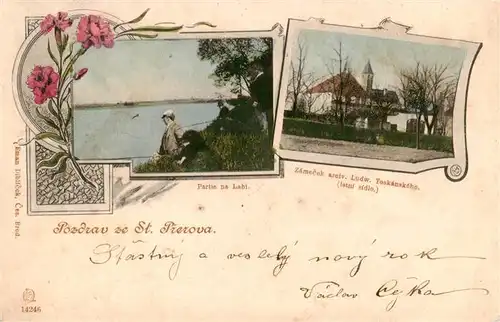 Partie na Labi.
Zámeček arciv. Ludw. Toskánského.
(letní sídlo.)
Pozdrav ze St. Přerova.
Šťastný a veselý nový rok
Václav Cejka
Eman Dibliček, Čes. Brod.
14246